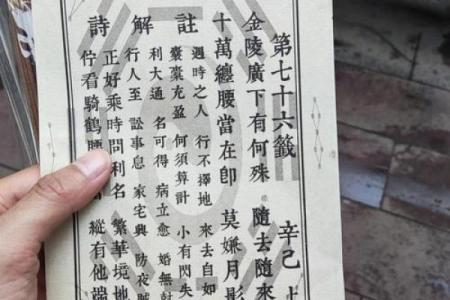 第七十六籤 辛己上
金陵廣下有何殊 隨去隨來
十萬纏腰當在卽 莫嫌月影
註
遇時之人 行不擇地 來去自如
囊橐充盈 何須算計 小有閃失
解
利大通 名可得 病立愈 婚無
行人至 訟事息 家宅興 防夜賊
詩
正好乘時問利名 繁華境地
佇看騎鶴腰 縱有他端